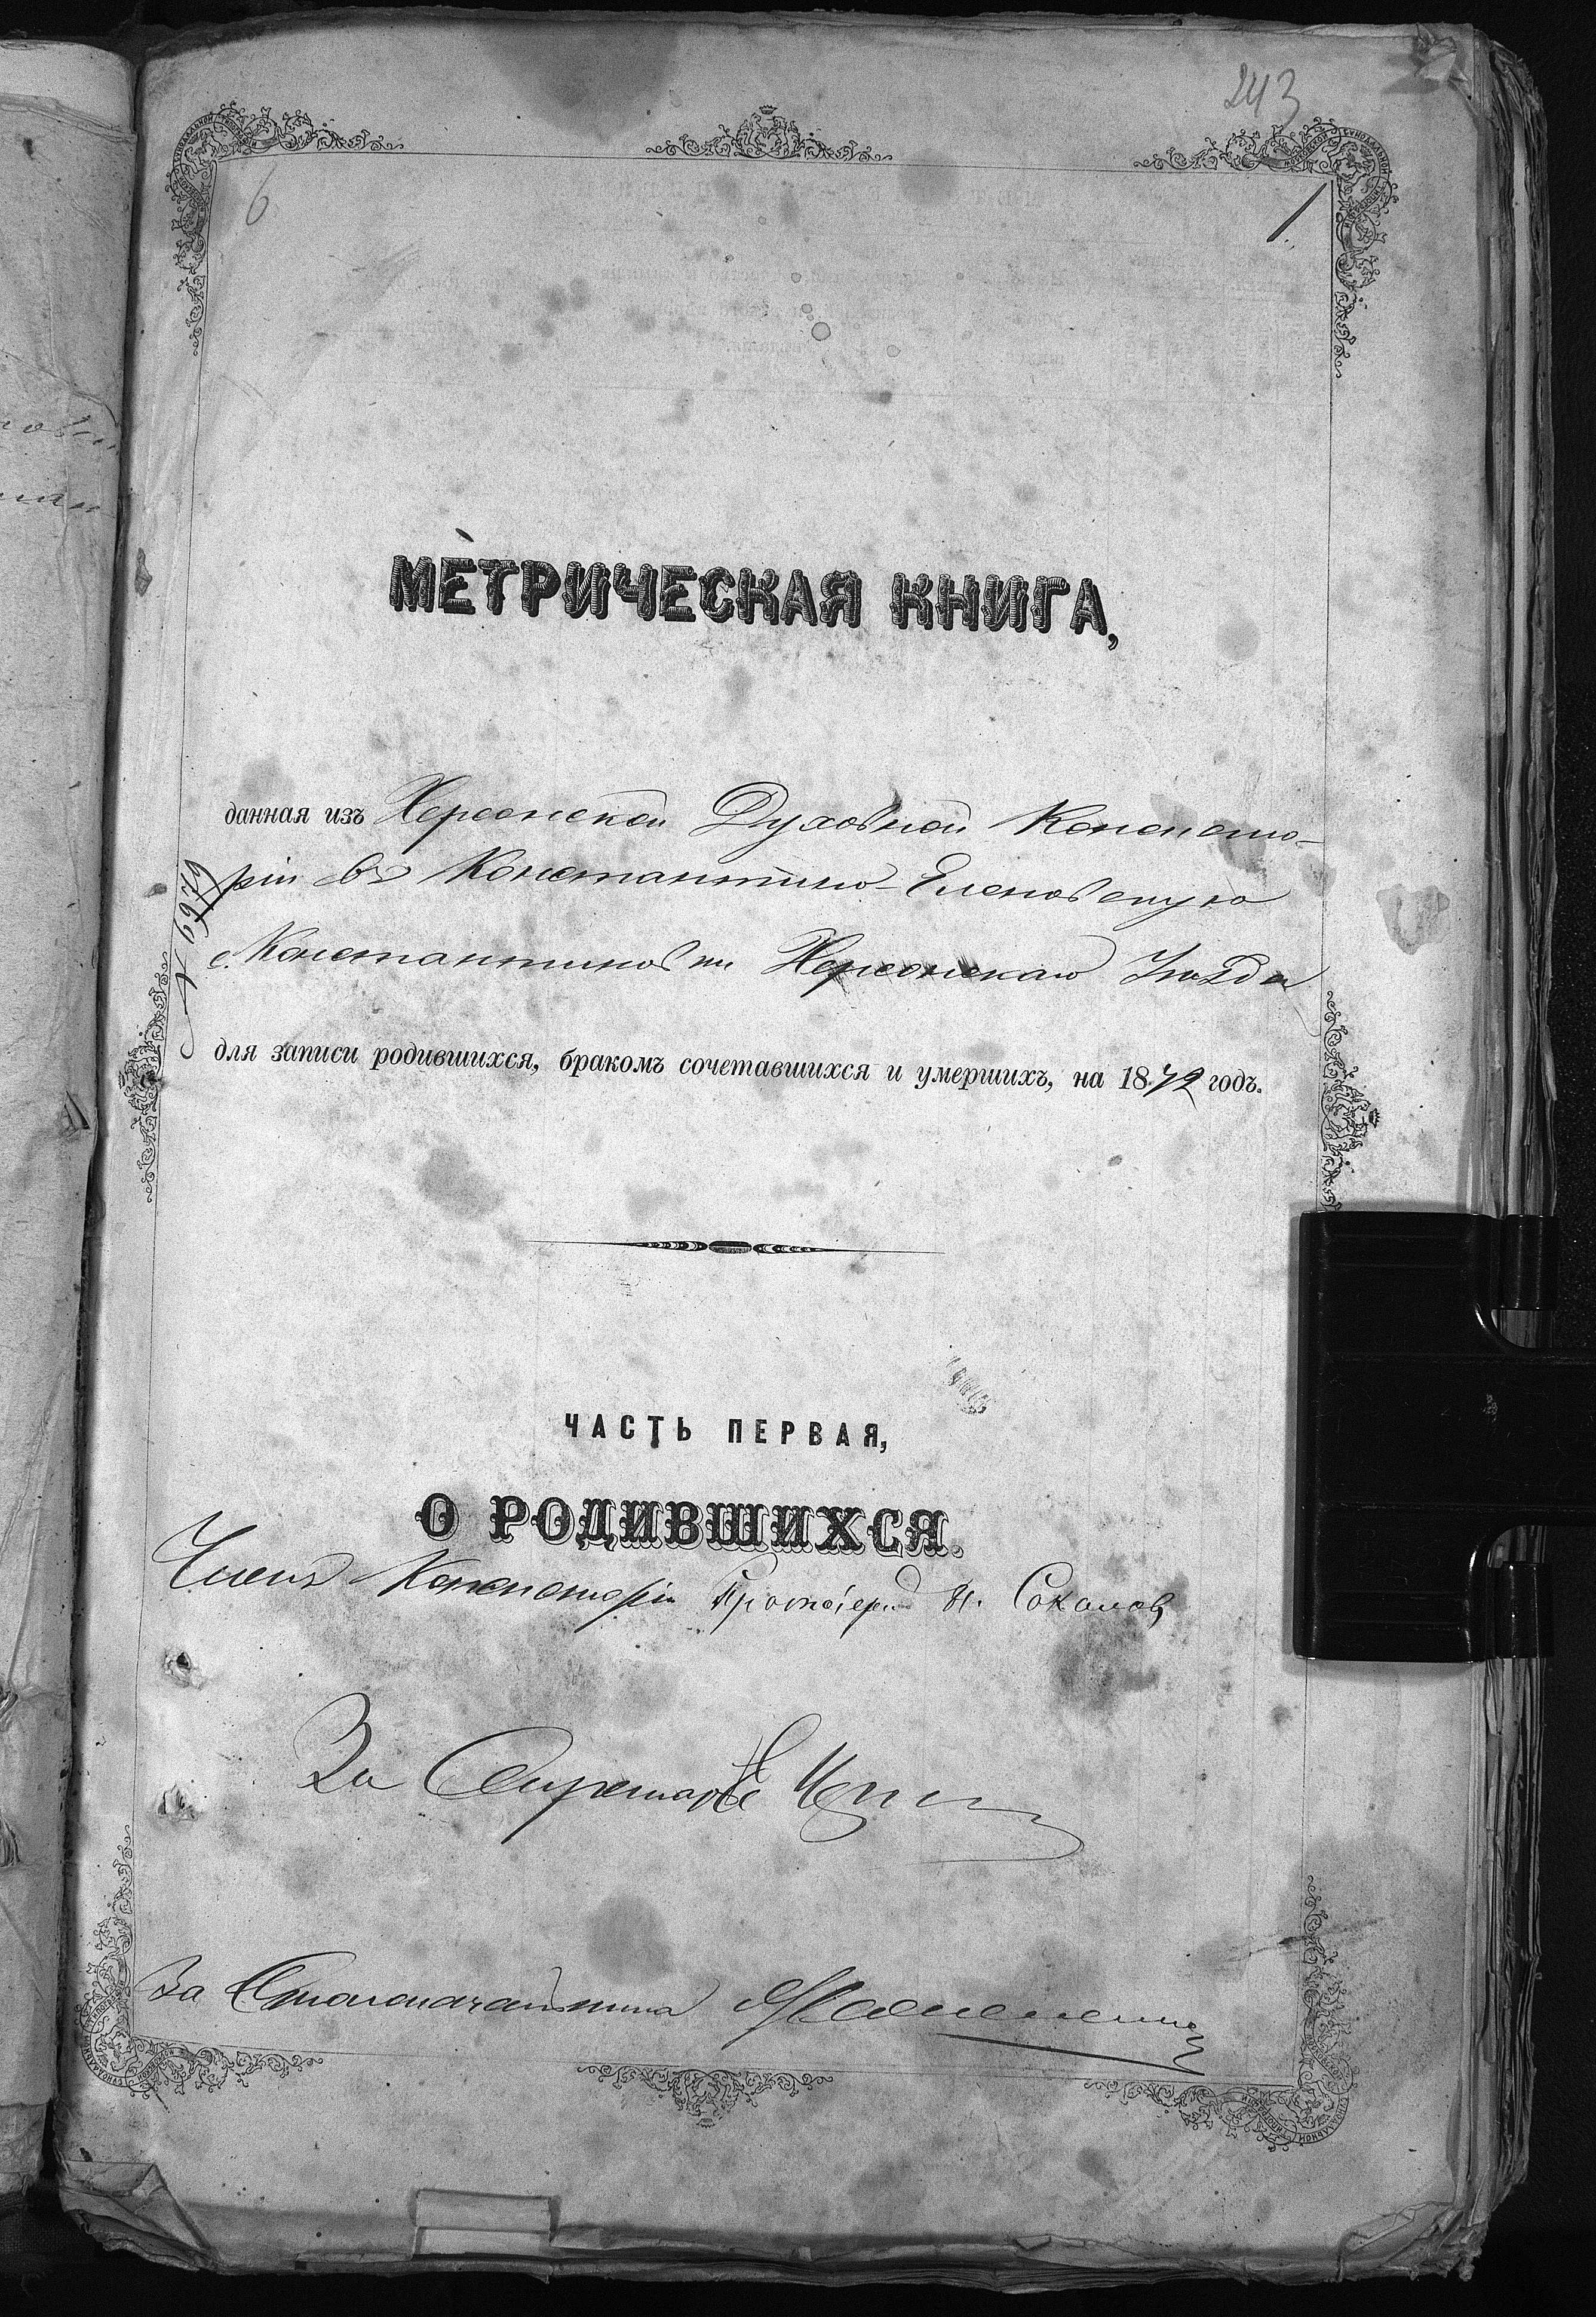 243
6
1
МЕТРИЧЕСКАЯ КНИГА,
данная изъ Херсонской Духовной Консисто-
ріи въ Константино-Еленовскую
с. Константиновки Херсонскаго Уѣзда
№ 6979
для записи родившихся, бракомъ сочетавшихся и умершихъ, на 1872 годъ.
ЧАСТЬ ПЕРВАЯ,
О РОДИВШИХСЯ.
Членъ Консисторіи Протоіерей Н. Соколовъ
За Секретаря
За Столоначальника